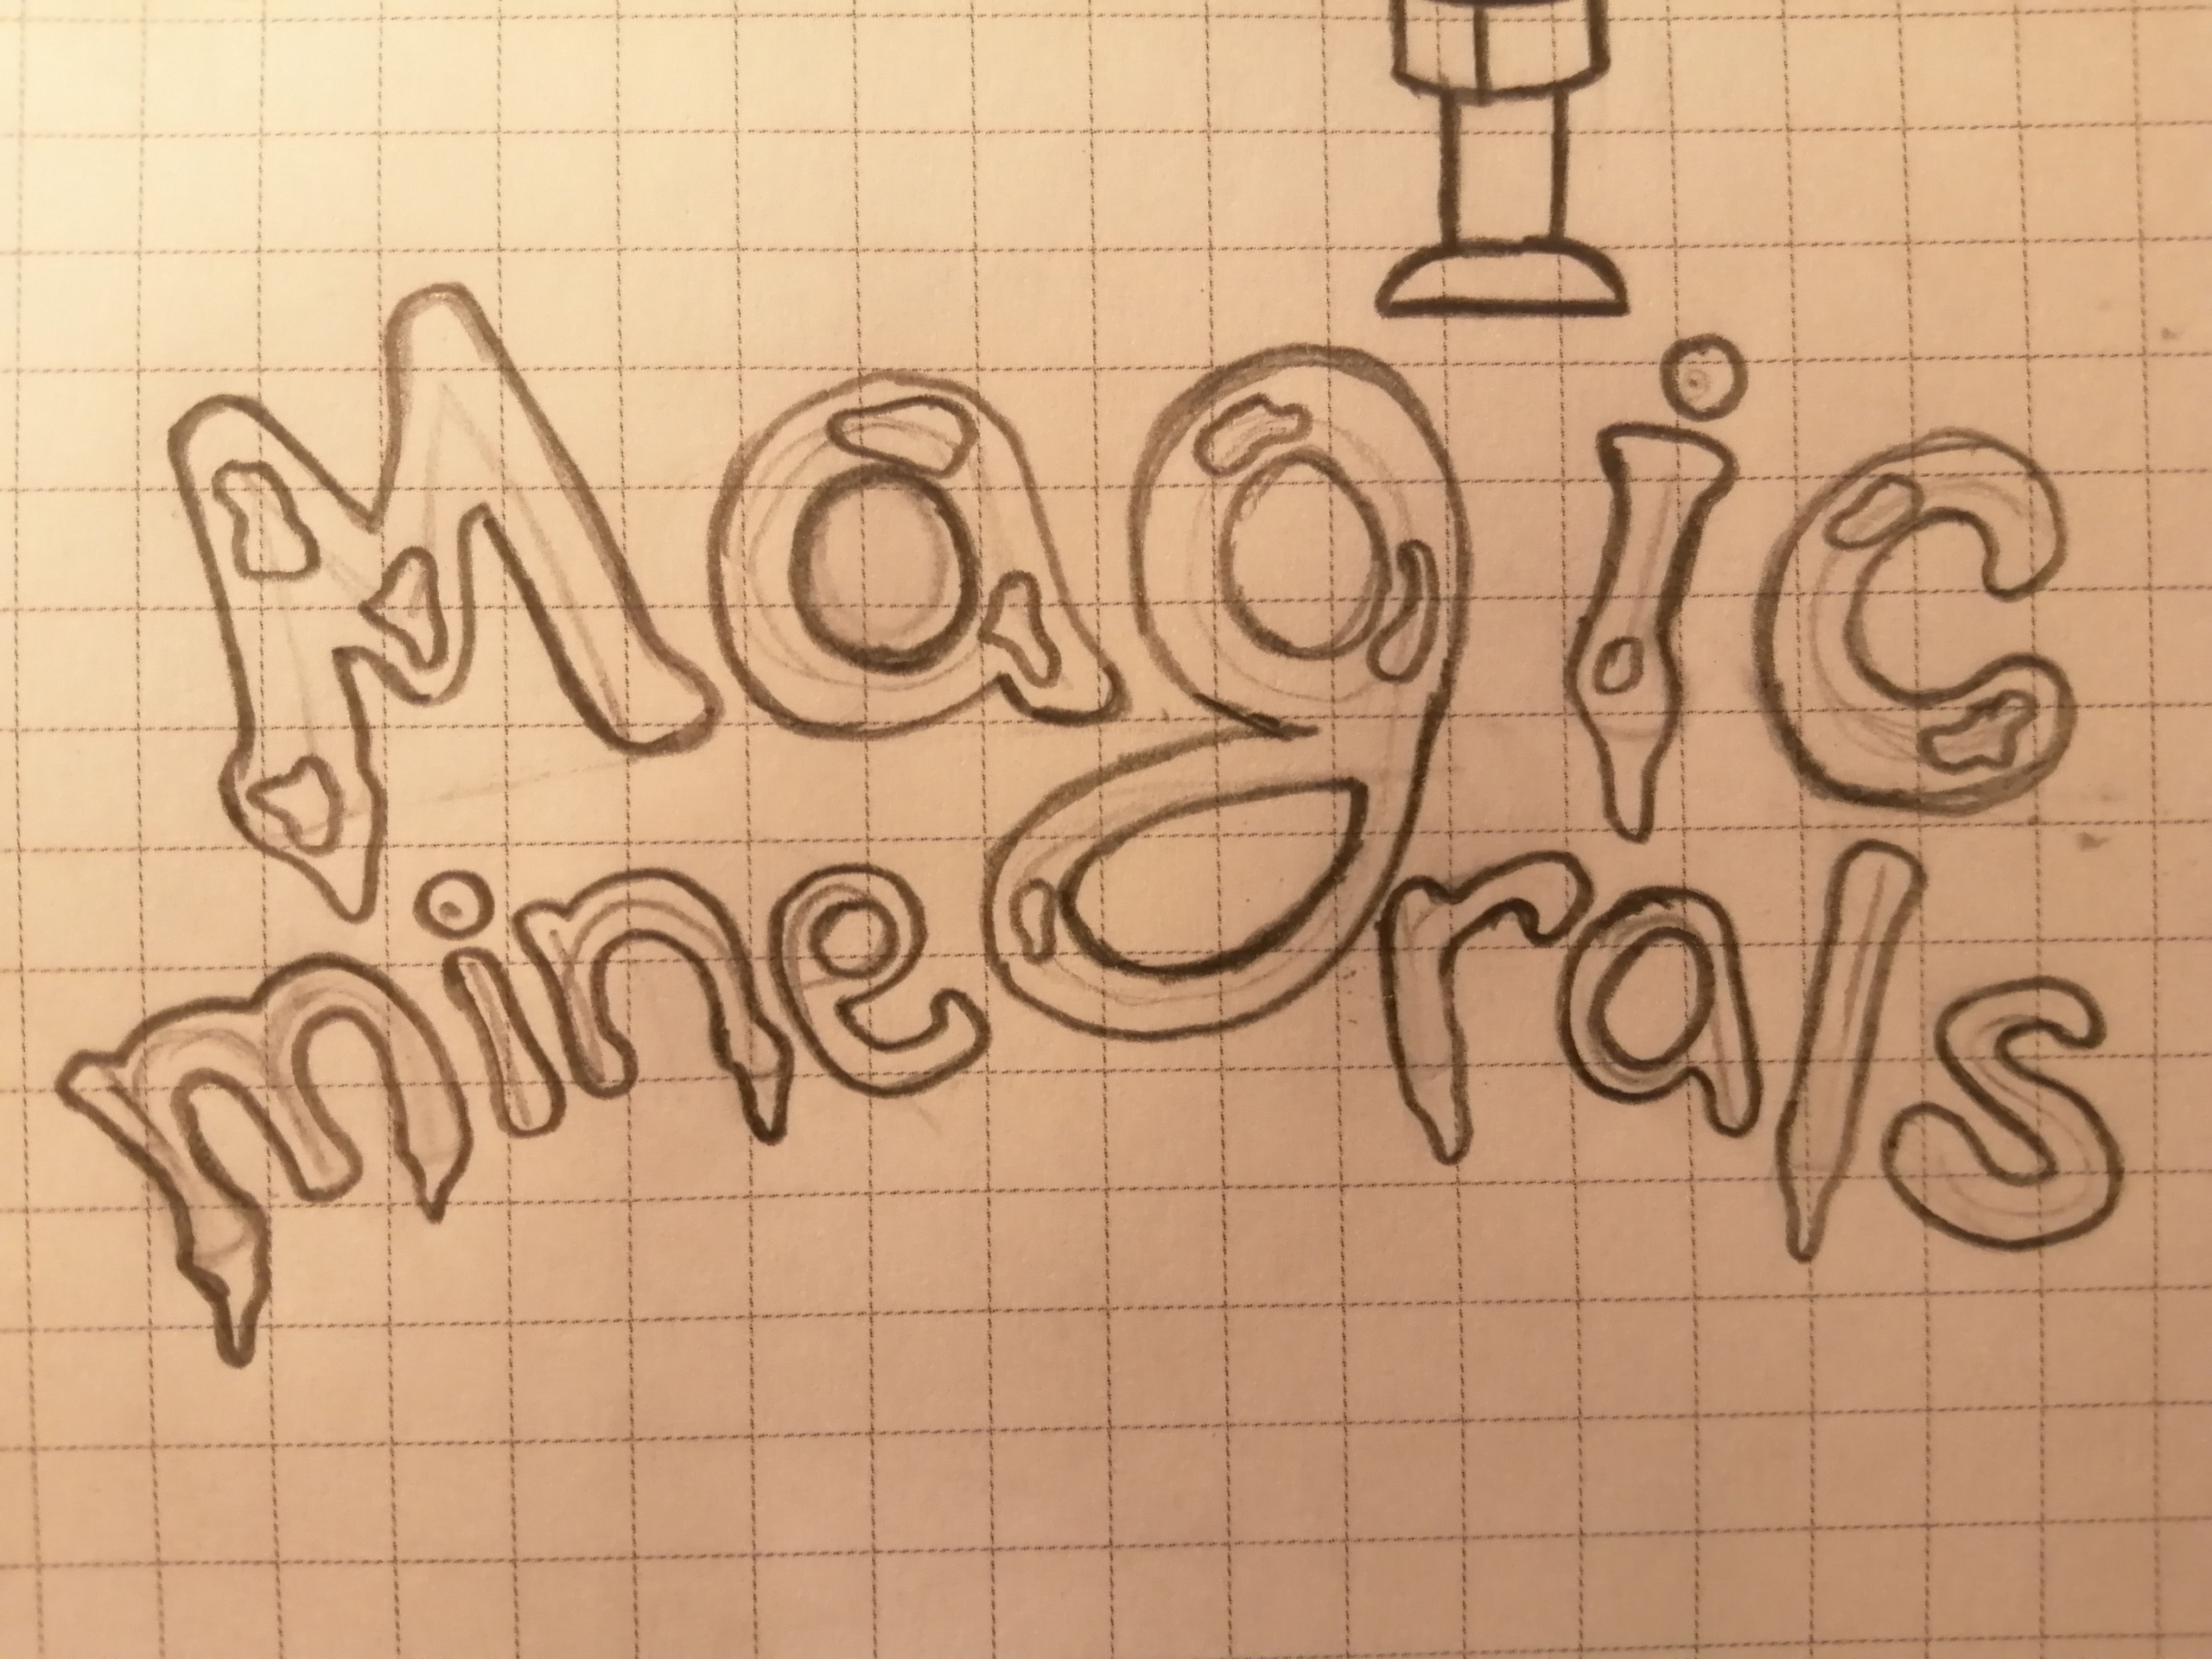 Magic
minerals